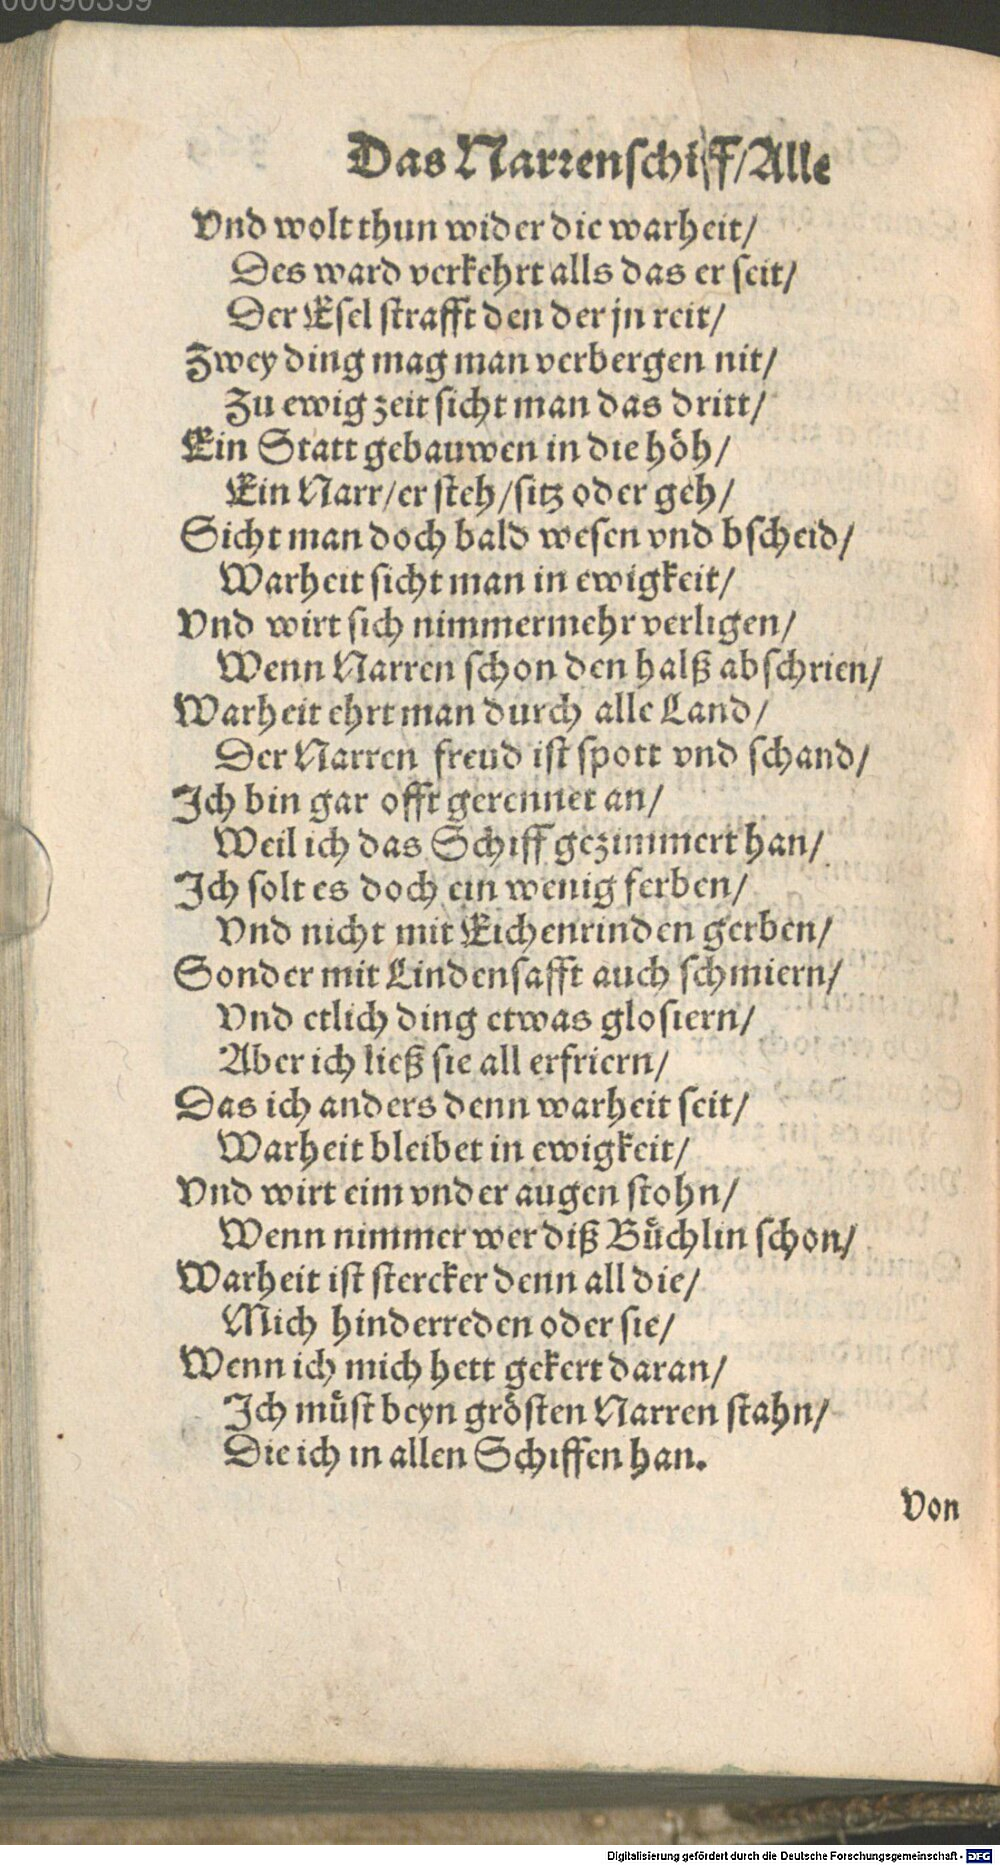 00090359
Das Narrenschiff/Alle
Vnd wolt thun wider die warheit/
Des ward verkehrt alls das er seit/
Der Esel strafft den der jn reit/
Zwey ding mag man verbergen nit/
Zu ewig zeit sicht man das dritt/
Ein Statt gebauwen in die höh/
Ein Narr/er steh/sitz oder geh/
Sicht man doch bald wesen vnd bscheid/
Warheit sicht man in ewigkeit/
Vnd wirt sich nimmermehr verligen/
Wenn Narren schon den halß abschrien/
Warheit ehrt man durch alle Land/
Der Narren freud ist spott vnd schand/
Ich bin gar offt gerennet an/
Weil ich das Schiff gezimmert han/
Ich solt es doch ein wenig ferben/
Vnd nicht mit Eichenrinden gerben/
Sonder mit Lindensafft auch schmiern/
Vnd etlich ding etwas glosiern/
Aber ich ließ sie all erfriern/
Das ich anders denn warheit seit/
Warheit bleibet in ewigkeit/
Vnd wirt eim vnder augen stohn/
Wenn nimmer wer diß Büchlin schon/
Warheit ist stercker denn all die/
Mich hinderreden oder sie/
Wenn ich mich hett gekert daran/
Ich müst beyn grösten Narren stahn/
Die ich in allen Schiffen han.
Von
Digitalisierung gefördert durch die Deutsche Forschungsgemeinschaft - DFG